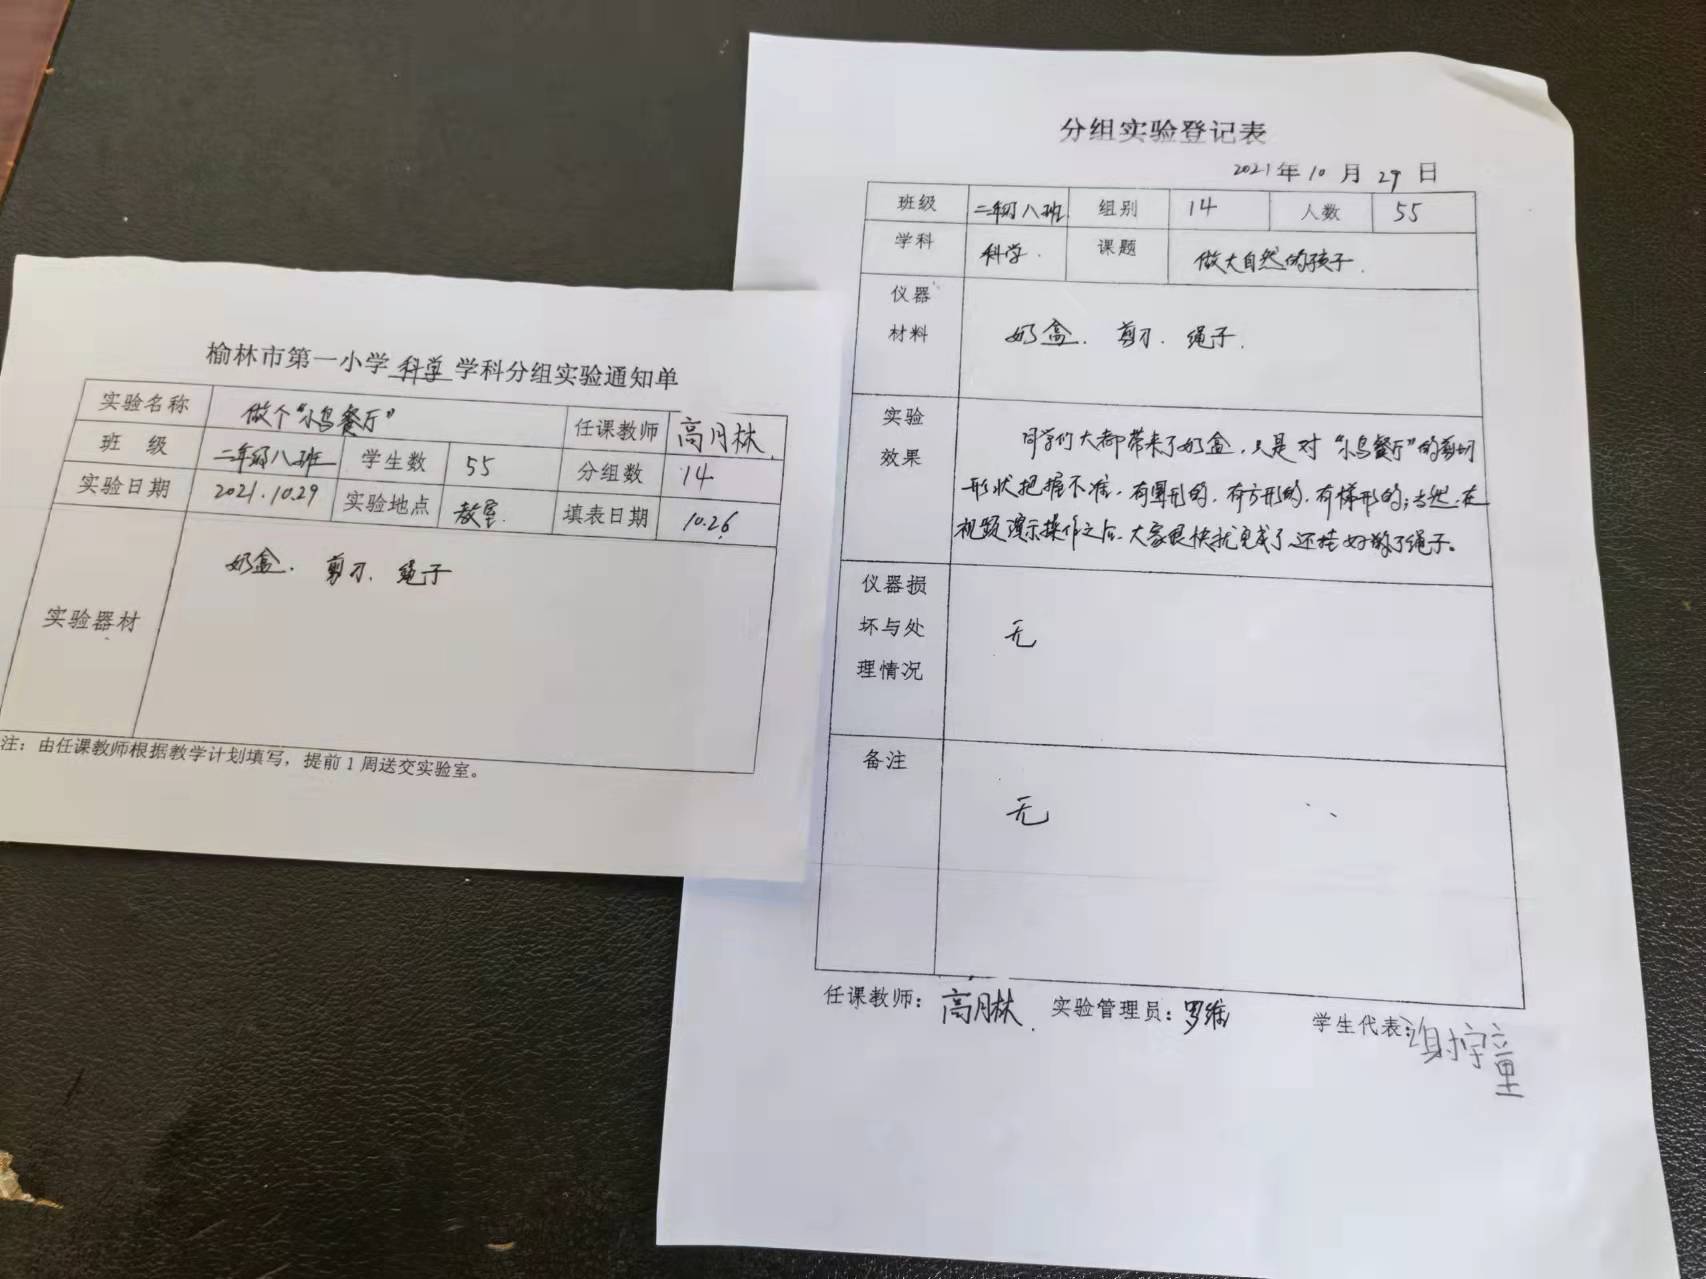 榆林市第一小学 科学 学科分组实验通知单
实验名称 做个“小鸟餐厅” 任课教师 高月林
班 级 二年级八班 学生数 55 分组数 14
实验日期 2021.10.29 实验地点 教室. 填表日期 10.26
实验器材 奶盒. 剪刀. 绳子
注：由任课教师根据教学计划填写，提前1周送交实验室。
分组实验登记表
2021年10月29日
班级 二年级八班 组别 14 人数 55
学科 科学. 课题 做大自然的孩子.
仪器
材料 奶盒. 剪刀. 绳子.
实验
效果
同学们大都带来了奶盒，只是对“小鸟餐厅”的剪切
形状把握不准，有圆形的，有方形的，有梯形的；当然，在
视频演示操作之后，大家很快就完成了，还挂好了绳子。
仪器损
坏与处
理情况
无
备注
无
任课教师：高月林. 实验管理员：罗维 学生代表：